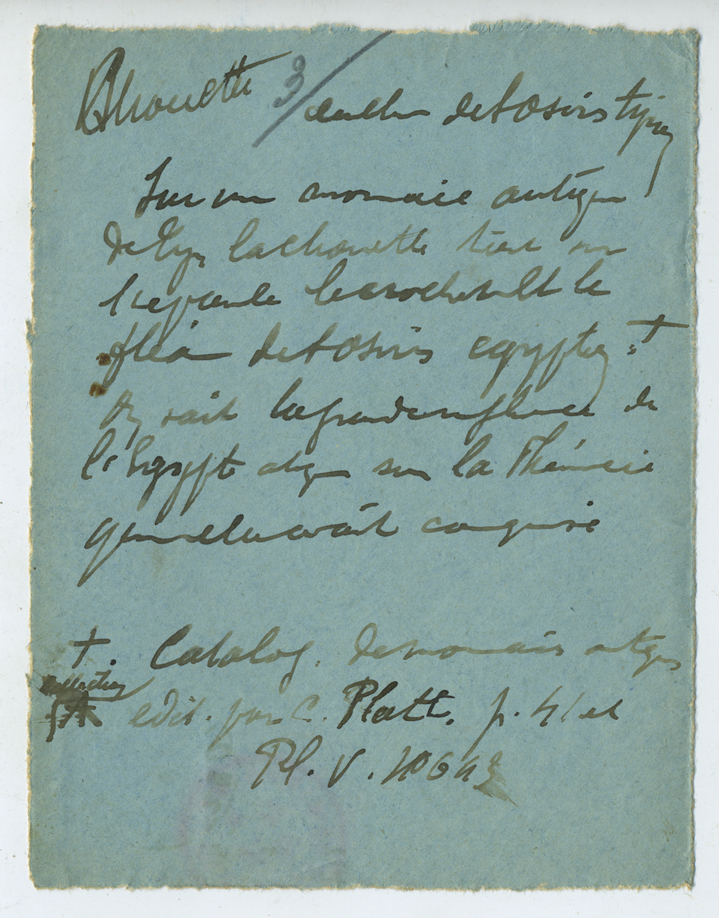 Chouette 3 culte de l'Osiris tyrien
Sur une monnaie antique
de Tyr la chouette tient sur
l'épaule le crochet et le
fléau de l'Osiris egyptien +
On sait la grande influence de
l'Egypte antique sur la Phénicie
qu'elle avait conquise
+. Catalog. de monnaies antiques
edit. par C. Platt. p. 41 et
Pl. V.